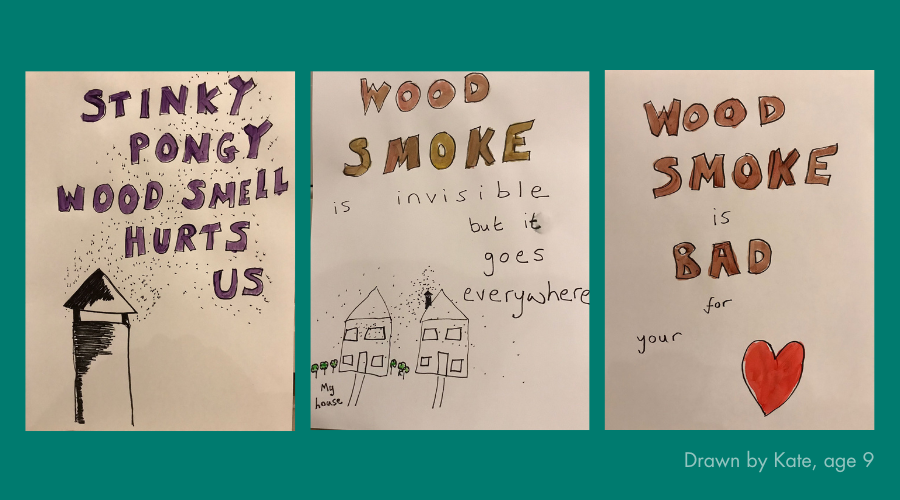 STINKY
PONGY
WOOD SMELL
HURTS
US
WOOD
SMOKE
is invisible
but it
goes
everywhere
My
house
WOOD
SMOKE
is
BAD
for
your
Drawn by Kate, age 9